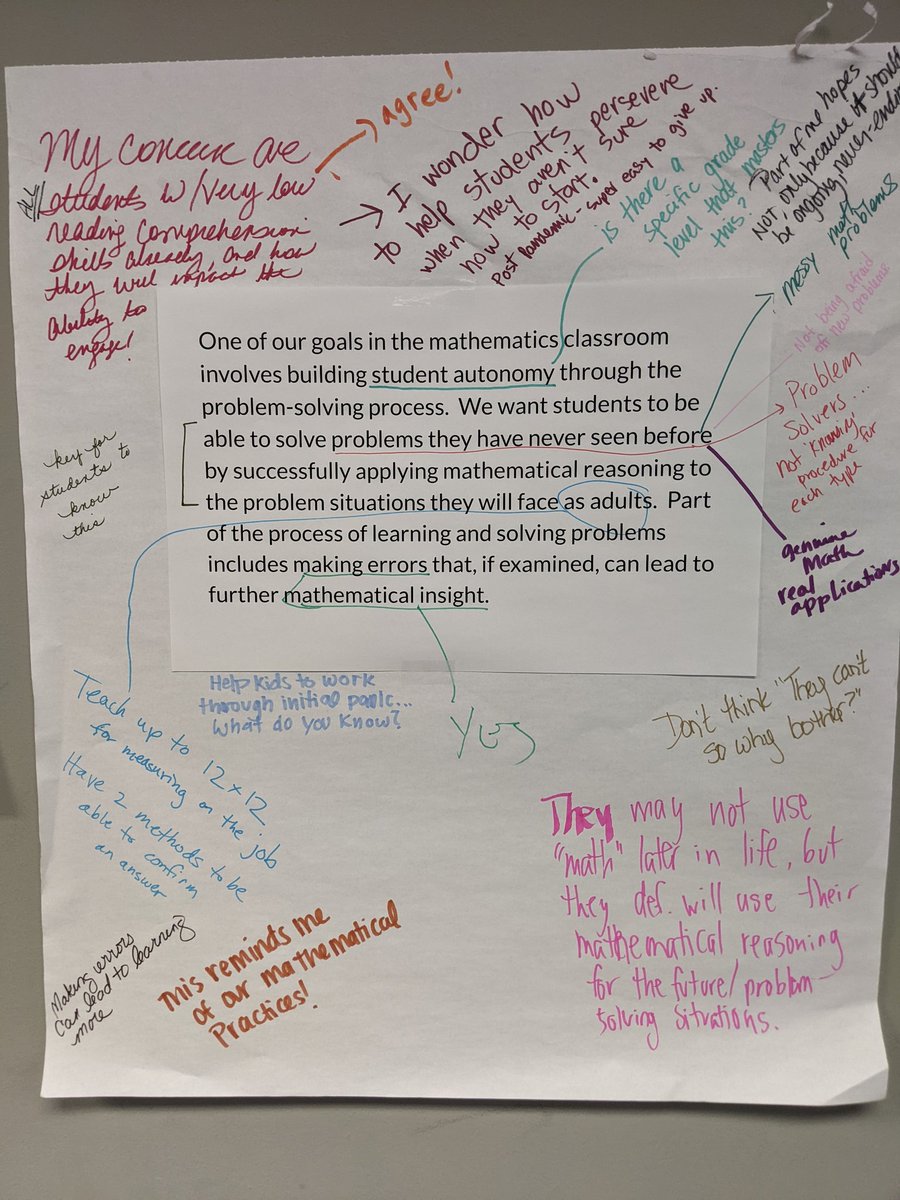 My concern are
students w/very low
reading comprehension
skills already, and how
they will impact the
ability to
engage!
agree!
I wonder how
to help students
when they aren't persevere
how to start. sure
Post pandemic - super easy to give up.
is there a
specific grade
level that masters
this?
Part of me hopes
Not, only because it should
be ongoing, never-ending
messy math
problems
Not being afraid
of new problems
Problem
Solvers...
not 'knowing'
procedure for
each type
genuine
Math
real
applications
One of our goals in the mathematics classroom
involves building student autonomy through the
problem-solving process. We want students to be
able to solve problems they have never seen before
by successfully applying mathematical reasoning to
the problem situations they will face as adults. Part
of the process of learning and solving problems
includes making errors that, if examined, can lead to
further mathematical insight.
key for
students to
know
this
Help kids to work
through initial panic...
What do you know?
Yes
Don't think "They can't
so why bother?"
Teach up to 12x12
for measuring on the job
Have 2 methods to be
able to confirm
an answer
They may not use
"math" later in life, but
they def. will use their
mathematical reasoning
for the future/problem-
solving situations.
Making errors
can lead to learning
more
This reminds me
of our mathematical
Practices!